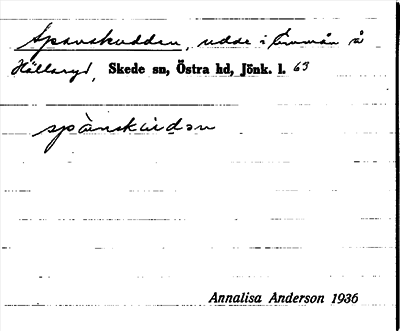 Spanskudden, udde i Emmån å
Hällaryd, Skede sn, Östra hd, Jönk. l. 63
spànskùdən
Annalisa Anderson 1936